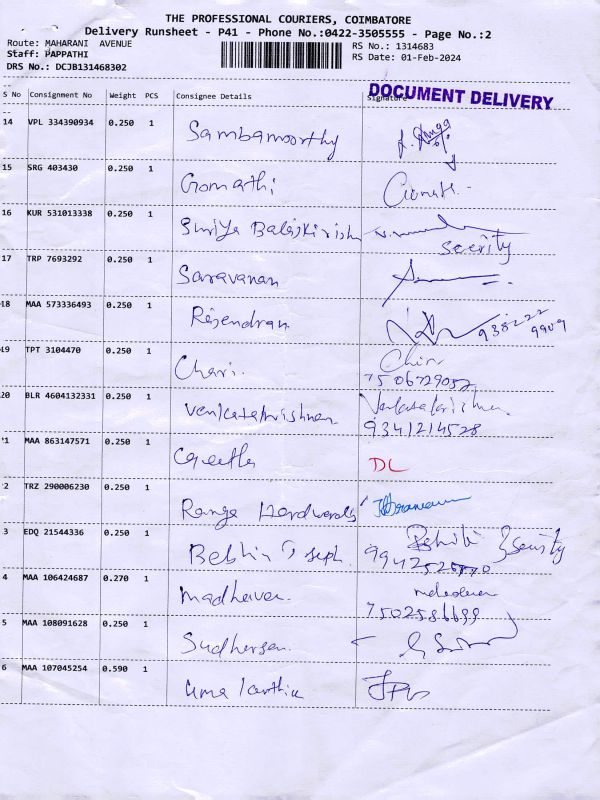 THE PROFESSIONAL COURIERS, COIMBATORE
Delivery Runsheet - P41 - Phone No.:0422-3505555 - Page No.:2
Route: MAHARANI AVENUE
RS No.: 1314683
Staff: PAPPATHI
RS Date: 01-Feb-2024
DRS No.: DCJB131468302
DOCUMENT DELIVERY
S No Consignment No Weight PCS Consignee Details Signature
14 VPL 334390934 0.250 1 Sambamoorthy
15 SRG 403430 0.250 1 Gomathi
16 KUR 531013338 0.250 1 Suriya Balajkirish
Secrity
17 TRP 7693292 0.250 1 Saravanan
18 MAA 573336493 0.250 1 Rajendran
938222
9909
19 TPT 3104470 0.250 1 Chari.
7506729052
20 BLR 4604132331 0.250 1 Venkatakrishnan Venkatakrishnan
9341214528
1 MAA 863147571 0.250 1 Geetha DL
2 TRZ 290006230 0.250 1 Ranga Hardwards
3 EDQ 21544336 0.250 1 Bebhin Joseph Secrity
4 MAA 106424687 0.270 1 Madhavan.
7502586699
5 MAA 108091628 0.250 1 Sudhersan.
6 MAA 107045254 0.590 1 Uma Karthie